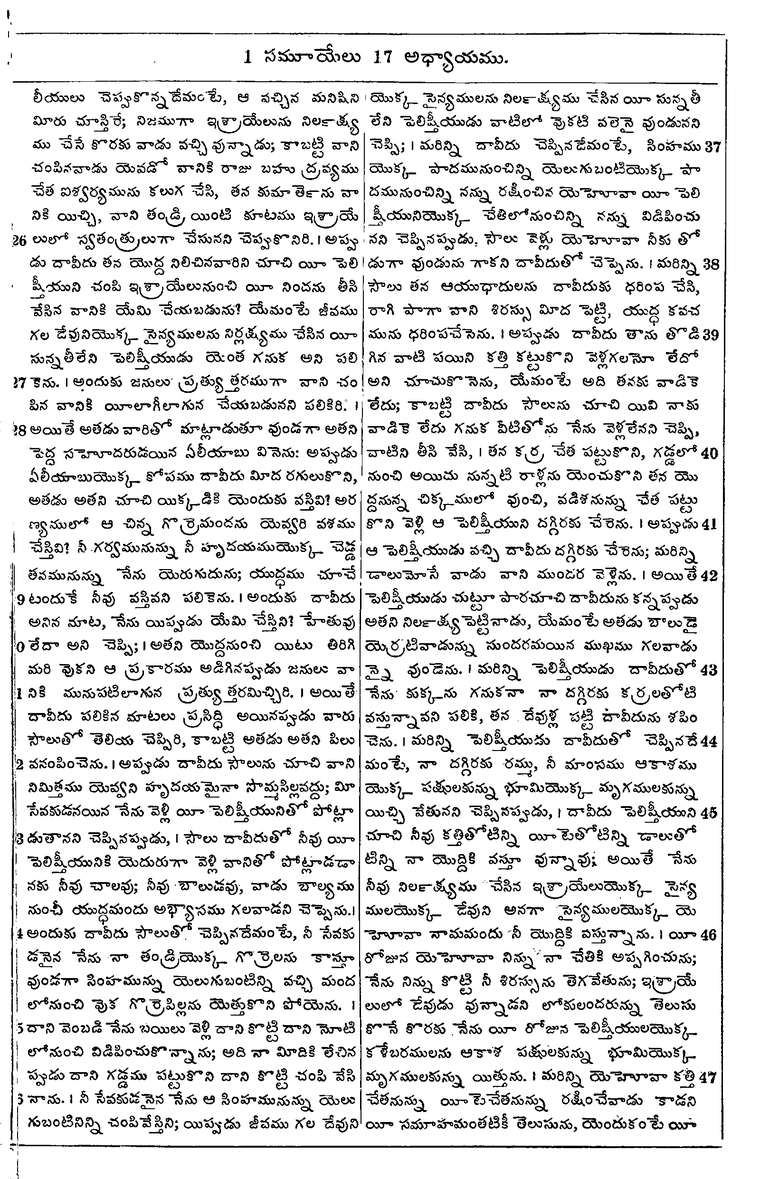 1 సమూయేలు 17 అధ్యాయము.
లీయులు చెప్పుకొన్నదేమంటే, ఆ వచ్చిన మనిషిని
మీరు చూస్తిరే; నిజముగా ఇశ్రాయేలును నిలాత్క్ష్య
ము చేసే కొరకు వాడు వచ్చి వున్నాడు; కాబట్టి వాని
చంపినవాడు యెవడో వానికి రాజు బహు ద్రవ్యము
చేత ఐశ్వర్యమును కలుగ చేసి, తన కుమార్తెను వా
నికి యిచ్చి, వాని తండ్రి యింటి కూటము ఇశ్రాయే
26 లులో స్వతంత్రులుగా చేసునని చెప్పుకొనిరి. । అప్పు
డు దావీదు తన యొద్ద నిలిచినవారిని చూచి యీ పెలి
ష్తీయుని చంపి ఇశ్రాయేలునుంచి యీ నిందను తీసి
వేసిన వానికి యేమి చేయబడును? యేమంటే జీవము
గల దేవునియొక్క సైన్యములను నిర్లత్క్ష్యము చేసిన యీ
సున్నతీలేని పెలిష్తీయుడు యెంత గనుక అని పలి
27 కెను. । అందుకు జనులు ప్రత్యుత్తరముగా వాని చం
పిన వానికి యీలాగీలాగున చేయబడునని పలికిరి. ।
28 అయితే అతడు వారితో మాట్లాడుతూ వుండగా అతని
పెద్ద సహోదరుడయిన ఏలీయాబు వినెను: అప్పుడు
ఏలీయాబుయొక్క కోపము దావీదు మీద రగులుకొని,
అతడు అతని చూచి యిక్కడికి యెందుకు వస్తివి? అర
ణ్యములో ఆ చిన్న గొర్రెమందను యెవ్వరి వశము
చేస్తివి? నీ గర్వమునున్ను నీ హృదయముయొక్క చెడ్డ
తనమునున్ను నేను యెరుగుదును; యుద్ధము చూచే
9 టందుకే నీవు వస్తివని పలికెను. । అందుకు దావీదు
అనిన మాట, నేను యిప్పుడు యేమి చేస్తిని? హేతువు
0 లేదా అని చెప్పి; । అతని యొద్దనుంచి యిటు తిరిగి
మరి వుకని ఆ ప్రకారము అడిగినప్పుడు జనులు వా
1 నికి మునుపటిలాగున ప్రత్యుత్తరమిచ్చిరి. । అయితే
దావీదు పలికిన మాటలు ప్రసిద్ధి అయినప్పుడు వారు
సౌలుతో తెలియ చెప్పిరి, కాబట్టి అతడు అతని పిలు
2 వనంపించెను. । అప్పుడు దావీదు సౌలును చూచి వాని
నిమిత్తము యెవ్వని హృదయమైనా సొమ్మసిల్లవద్దు; మీ
సేవకుడనయిన నేను వెళ్లి యీ పెలిష్తీయునితో పోట్లా
3 డుతానని చెప్పినప్పుడు, । సౌలు దావీదుతో నీవు యీ
పెలిష్తీయునికి యెదురుగా వెళ్లి వానితో పోట్లాడడా
నకు నీవు చాలవు; నీవు బాలుడవు, వాడు బాల్యము
నుంచీ యుద్ధమందు అభ్యాసము గలవాడని చెప్పెను.।
4 అందుకు దావీదు సౌలుతో చెప్పినదేమంటే, నీ సేవకు
డనైన నేను నా తండ్రియొక్క గొర్రెలను కాస్తూ
వుండగా సింహమున్ను యెలుగుబంటిన్ని వచ్చి మంద
లోనుంచి వుక గొర్రెపిల్లను యెత్తుకొని పోయెను. ।
5 దాని వెంబడి నేను బయిలు వెళ్లి దాని కొట్టి దాని నోటి
లోనుంచి విడిపించుకొన్నాను; అది నా మీదికి లేచిన
ప్పుడు దాని గడ్డము పట్టుకొని దాని కొట్టి చంపి వేసి
6 నాను. । నీ సేవకుడనైన నేను ఆ సింహమునున్ను యెలు
గుబంటినిన్ని చంపివేస్తిని; యిప్పుడు జీవము గల దేవుని
యొక్క సైన్యములను నిలాత్క్ష్యము చేసిన యీ సున్నతీ
లేని పెలిష్తీయుడు వాటిలో వుకటి వలెనై వుండునని
చెప్పి; । మరిన్ని దావీదు చెప్పినదేమంటే, సింహము 37
యొక్క పాదమునుంచిన్ని యెలుగుబంటియొక్క పా
దమునుంచిన్ని నన్ను రక్షించిన యెహోవా యీ పెలి
ష్తీయునియొక్క చేతిలోనుంచిన్ని నన్ను విడిపించు
నని చెప్పినప్పుడు. సౌలు వెళ్లు యెహోవా నీకు తో
డుగా వుండును గాకని దావీదుతో చెప్పెను. । మరిన్ని 38
సౌలు తన ఆయుధాదులను దావీదుకు ధరింప చేసి,
రాగి పాగా వాని శిరస్సు మీద పెట్టి, యుద్ధ కవచ
మును ధరింపచేసెను. । అప్పుడు దావీదు తాను తొడి 39
గిన వాటి పయిని కత్తి కట్టుకొని వెళ్లగలమో లేదో
అని చూచుకొనెను, యేమంటే అది తనకు వాడికె
లేదు; కాబట్టి దావీదు సౌలును చూచి యివి నాకు
వాడికె లేదు గనుక వీటితోను నేను వెళ్లలేనని చెప్పి,
వాటిని తీసి వేసి, । తన కర్ర చేత పట్టుకొని, గడ్డలో 40
నుంచి అయిదు సున్నటి రాళ్లను యెంచుకొని తన యొ
ద్దనున్న చిక్కములో వుంచి, వడిశనున్ను చేత పట్టు
కొని వెళ్లి ఆ పెలిష్తీయుని దగ్గిరకు చేరెను. । అప్పుడు 41
ఆ పెలిష్తీయుడు వచ్చి దావీదు దగ్గిరకు చేరెను; మరిన్ని
డాలుమోసే వాడు వాని ముందర వెళ్లెను. । అయితే 42
పెలిష్తీయుడు చుట్టూ పారచూచి దావీదును కన్నప్పుడు
అతని నిలాత్క్ష్యపెట్టినాడు, యేమంటే అతడు బాలుడై
యెర్రటివాడున్ను సుందరమయిన ముఖము గలవాడు
న్నై వుండెను. । మరిన్ని పెలిష్తీయుడు దావీదుతో 43
నేను కుక్కను గనుకనా నా దగ్గిరకు కర్రలతోటి
వస్తున్నావని పలికి, తన దేవుళ్ల పట్టి దావీదును శపిం
చెను. । మరిన్ని పెలిష్తీయుడు దావీదుతో చెప్పినదే 44
మంటే, నా దగ్గిరకు రమ్ము, నీ మాంసము ఆకాశము
యొక్క పక్షులకున్ను భూమియొక్క మృగములకున్ను
యిచ్చి వేతునని చెప్పినప్పుడు, । దావీదు పెలిష్తీయుని 45
చూచి నీవు కత్తితోటిన్ని యీటెతోటిన్ని డాలుతో
టిన్ని నా యొద్దికి వస్తూ వున్నావు; అయితే నేను
నీవు నిలాత్క్ష్యము చేసిన ఇశ్రాయేలుయొక్క సైన్య
ములయొక్క దేవుని అనగా సైన్యములయొక్క యె
హోవా నామమందు నీ యొద్దికి వస్తున్నాను. । యీ 46
రోజున యెహోవా నిన్ను నా చేతికి అప్పగించును;
నేను నిన్ను కొట్టి నీ శిరస్సును తెగవేతును; ఇశ్రాయే
లులో దేవుడు వున్నాడని లోకులందరున్ను తెలుసు
కొనే కొరకు నేను యీ రోజున పెలిష్తీయులయొక్క
కళేబరములను ఆకాశ పక్షులకున్ను భూమియొక్క
మృగములకున్ను యిత్తును. । మరిన్ని యెహోవా కత్తి 47
చేతనున్ను యీటెచేతనున్ను రక్షించేవాడు కాడని
యీ సమూహమంతటికీ తెలుసును, యెందుకంటే యీ